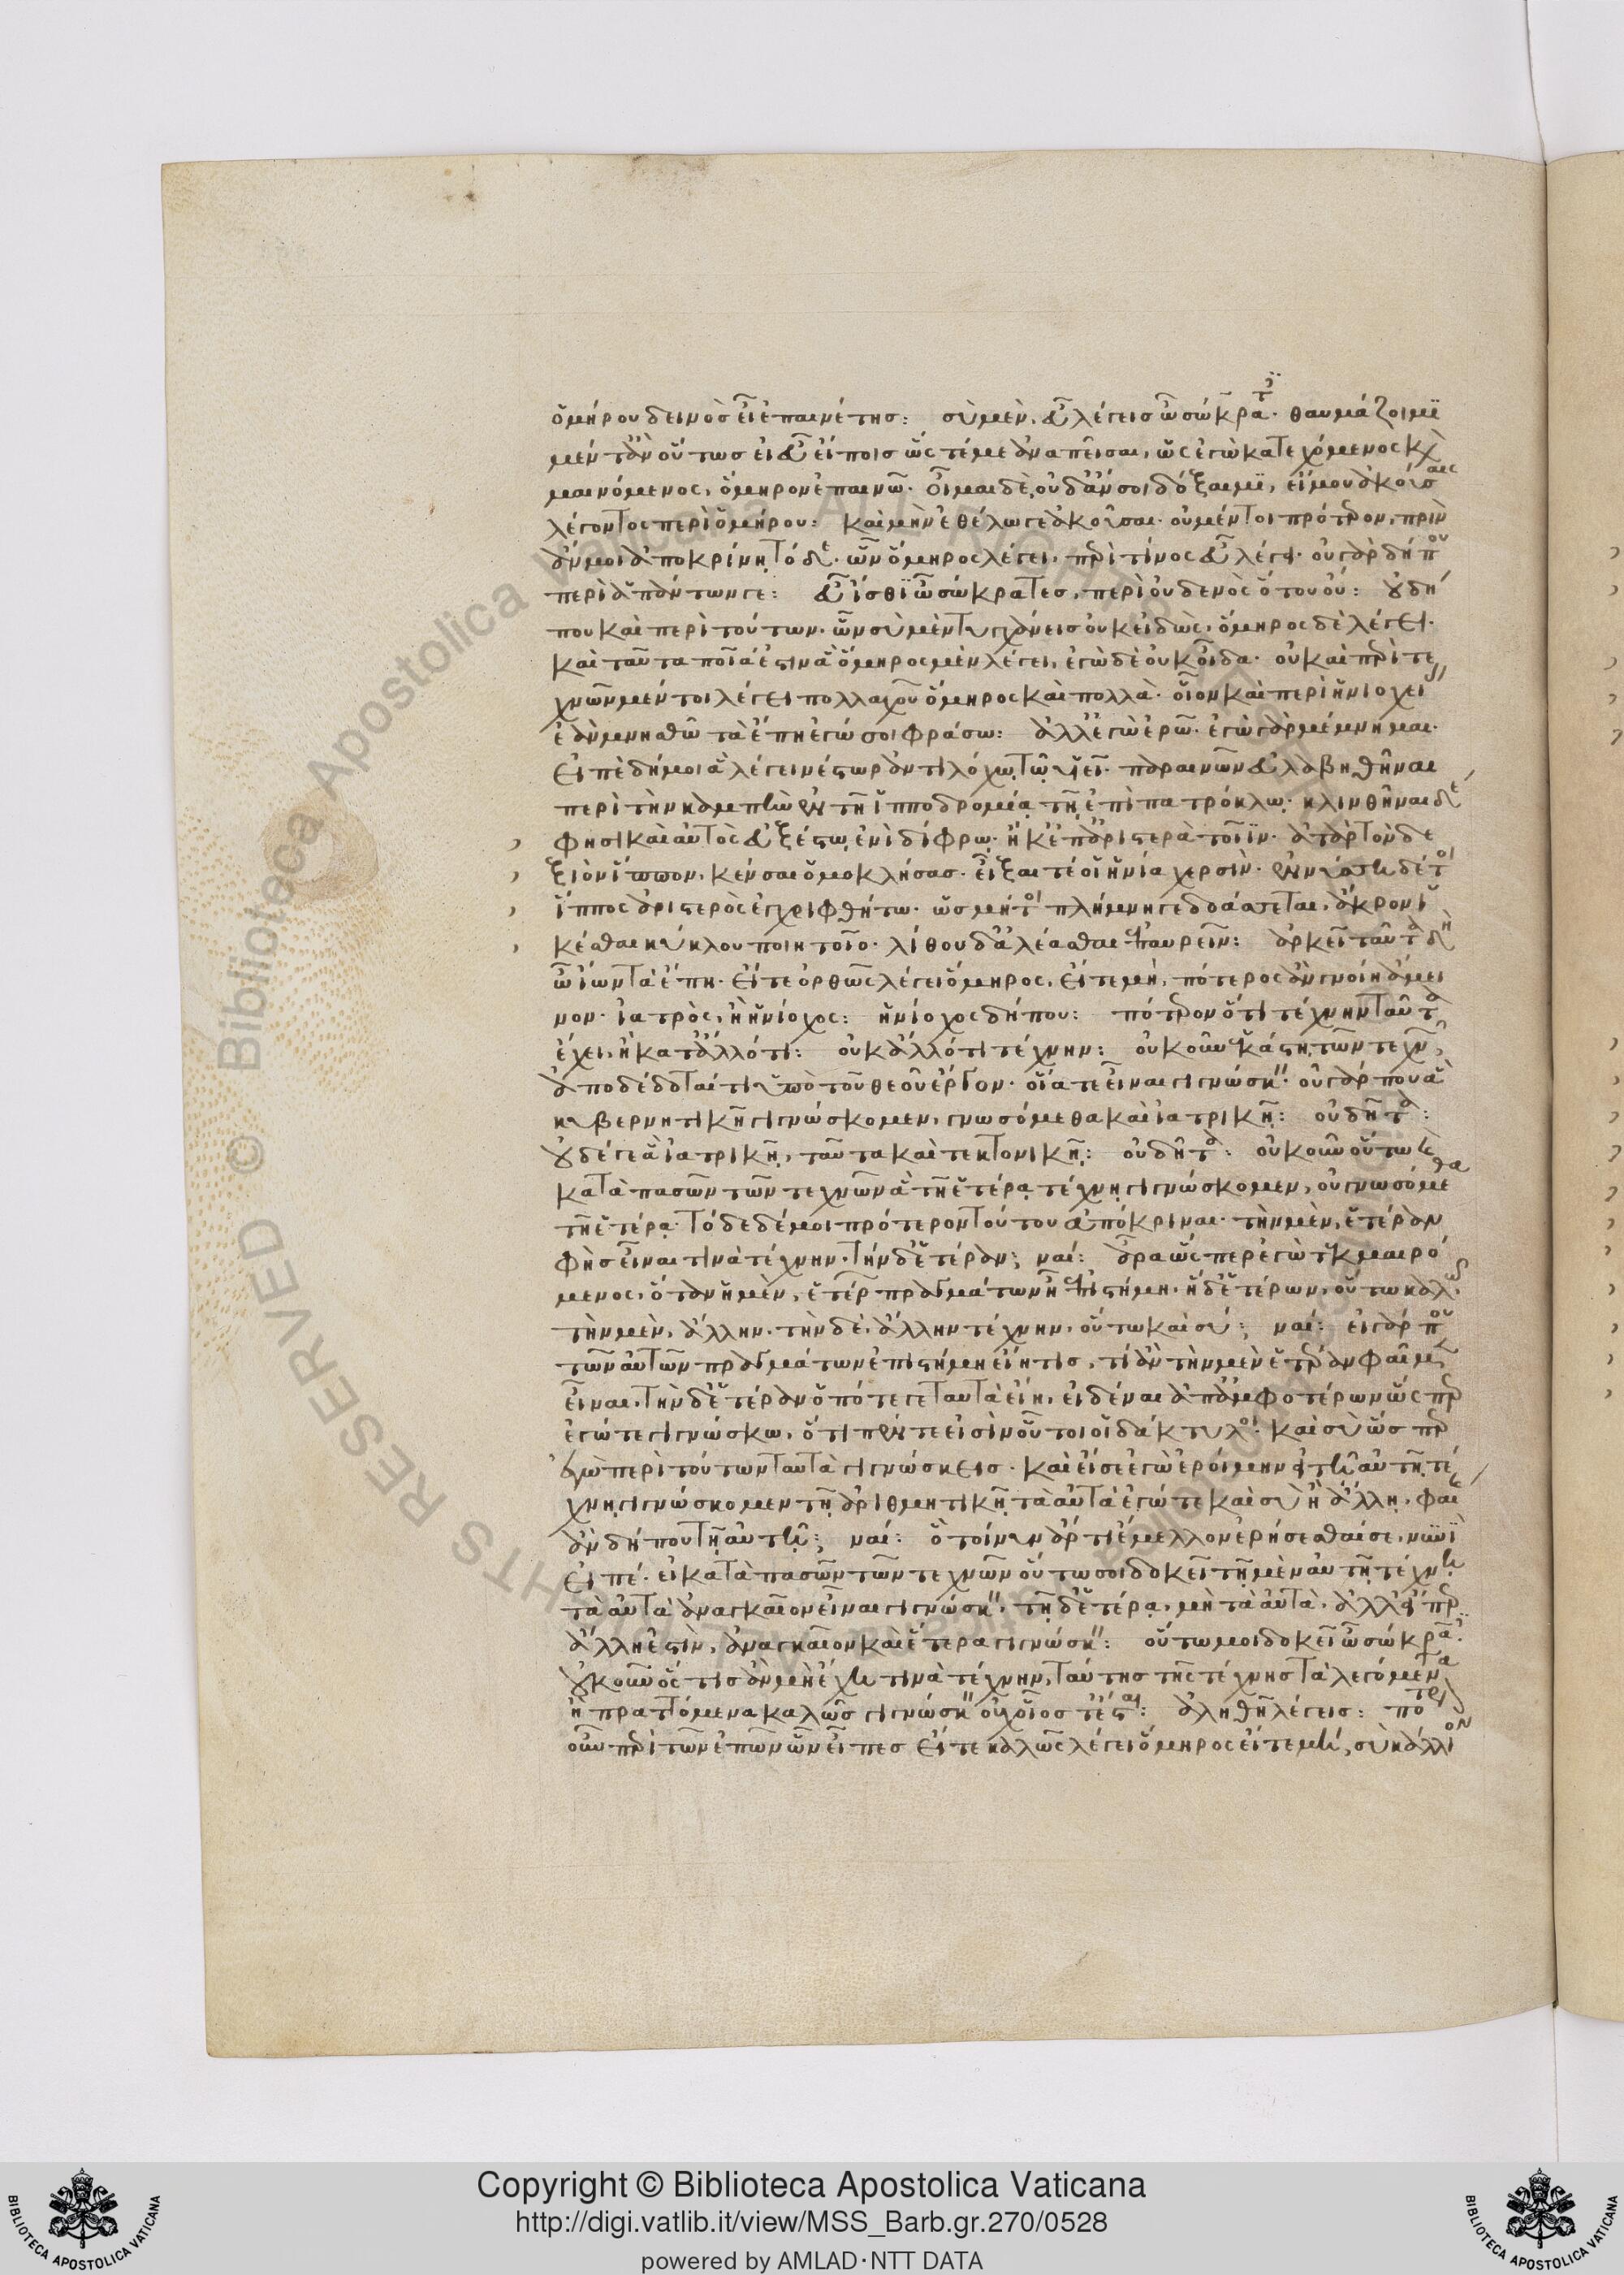 ὁμήρου δεινὸς εἶ ἐπαινέτης: σὺ μὲν, εὖ λέγεις ὦ σώκρατες· θαυμάζοιμι
μέν τ' ἂν οὕτως εἰ εὖ εἴποις ὥς τέ με ἀναπεῖσαι, ὡς ἐγὼ κατεχόμενος καὶ
μαινόμενος, ὅμηρον ἐπαινῶ. οἶμαι δὲ, οὐδ' ἄν σοι δόξαιμι, εἴ μου ἀκούσαις
λέγοντος περὶ ὁμήρου: καὶ μὴν ἐθέλω γε ἀκοῦσαι· οὐ μέντοι πρότερον, πρὶν
ἄν μοι ἀποκρίνῃ τόδε· ὧν ὅμηρος λέγει, περὶ τίνος εὖ λέγει· οὐ γὰρ δήπου
περὶ ἁπάντων γε: εὖ ἴσθι ὦ σώκρατες, περὶ οὐδενὸς ὅτου οὔ: οὐ δή
που καὶ περὶ τούτων· ὧν σὺ μὲν τυγχάνεις οὐκ εἰδὼς, ὅμηρος δὲ λέγει·
καὶ ταῦτα ποῖά ἐστιν ἃ ὅμηρος μὲν λέγει, ἐγὼ δὲ οὐκ οἶδα· οὐ καὶ περὶ τε
χνῶν μέντοι λέγει πολλαχοῦ ὅμηρος καὶ πολλὰ· οἷον καὶ περὶ ἡνιοχείας
ἐὰν μνησθῶ τὰ ἔπη ἐγώ σοι φράσω: ἀλλ' ἐγὼ ἐρῶ· ἐγὼ γὰρ μέμνημαι·
εἰπὲ δή μοι ἃ λέγει νέστωρ ἀντιλόχῳ τῷ υἱεῖ· παραινῶν εὐλαβηθῆναι
περὶ τὴν καμπὴν ἐν τῇ ἱπποδρομίᾳ τῇ ἐπὶ πατρόκλῳ· κλινθῆναι δέ
φησι καὶ αὐτὸς εὐξέστῳ ἐνὶ δίφρῳ· ἦκ' ἐπ' ἀριστερὰ τοῖϊν· ἀτὰρ τὸν δε
ξιὸν ἵππον, κένσαι ὁμοκλήσας· εἶξαι τέ οἱ ἡνία χερσὶν· ἐν νύσσῃ δέ τοι
ἵππος ἀριστερὸς ἐγχριφθήτω· ὡς μή τοι πλήμνη γε δοάσσεται, ἄκρον ἱ
κέσθαι κύκλου ποιητοῖο· λίθου δ' ἀλέασθαι ἐπαυρεῖν: ἀρκεῖ ταῦτα δὴ
ὦ ἴων τὰ ἔπη· εἴτε ὀρθῶς λέγει ὅμηρος, εἴτε μὴ, πότερος ἂν γνοίη ἄμει
νον· ἰατρὸς, ἢ ἡνίοχος: ἡνίοχος δήπου: πότερον ὅτι τέχνην ταύτην
ἔχει, ἢ κατ' ἄλλό τι: οὐκ ἀλλ' ὅτι τέχνην: οὐκοῦν ἑκάστῃ τῶν τεχνῶν
ἀποδέδοταί τι ὑπὸ τοῦ θεοῦ ἔργον· οἵα τε εἶναι γιγνώσκειν· οὐ γάρ που ἃ
κυβερνητικῇ γιγνώσκομεν, γνωσόμεθα καὶ ἰατρικῇ: οὐ δῆτα:
οὐδέ γε ἃ ἰατρικῇ, ταῦτα καὶ τεκτονικῇ: οὐ δῆτα: οὐκοῦν οὕτω καὶ
κατὰ πασῶν τῶν τεχνῶν ἃ τῇ ἑτέρᾳ τέχνῃ γιγνώσκομεν, οὐ γνωσόμεθα
τῇ ἑτέρᾳ· τόδε δέ μοι πρότερον τούτου ἀπόκριναι· τὴν μὲν, ἑτέραν
φῂς εἶναι τινὰ τέχνην· τὴν δ' ἑτέραν; ναί: ἆρα ὥςπερ ἐγὼ τεκμαιρό
μενος, ὅταν ἡ μὲν, ἑτέρων πραγμάτων ᾖ ἐπιστήμη· ἡ δ' ἑτέρων, οὕτω καλῶ
τὴν μὲν, ἄλλην. τὴν δὲ, ἄλλην τέχνην, οὕτω καὶ σύ; ναί: εἰ γάρ που
τῶν αὐτῶν πραγμάτων ἐπιστήμη εἴη τις, τί ἂν τὴν μὲν ἑτέραν φαῖμεν
εἶναι, τὴν δ' ἑτέραν ὁπότε γε ταυτὰ εἴη, εἰδέναι ἀπ' ἀμφοτέρων ὥςπερ
ἐγώ τε γιγνώσκω, ὅτι πέντε εἰσὶν οὗτοι οἱ δάκτυλοι· καὶ σὺ ὥσπερ
ἐγὼ περὶ τούτων ταυτὰ γιγνώσκεις· καὶ εἴ σε ἐγὼ ἐροίμην εἰ τῇ αὐτῇ τέ
χνῃ γιγνώσκομεν τῇ ἀριθμητικῇ τὰ αὐτὰ ἐγώ τε καὶ σὺ ἢ ἄλλῃ, φαίης
ἂν δήπου τῇ αὐτῇ; ναί: ὃ τοίνυν ἄρτι ἔμελλον ἐρήσεσθαί σε, νυνὶ
εἰπέ· εἰ κατὰ πασῶν τῶν τεχνῶν οὕτω σοι δοκεῖ τῇ μὲν αὐτῇ τέχνῃ
τὰ αὐτὰ ἀναγκαῖον εἶναι γιγνώσκειν· τῇ δ' ἑτέρᾳ, μὴ τὰ αὐτὰ, ἀλλ' εἴπερ
ἄλλη ἐστὶν, ἀναγκαῖον καὶ ἕτερα γιγνώσκειν: οὕτω μοι δοκεῖ ὦ σώκρατες:
οὐκοῦν ὅστις ἂν μὴ ἔχῃ τινὰ τέχνην, ταύτης τῆς τέχνης τὰ λεγόμενα
ἢ πραττόμενα καλῶς γιγνώσκειν οὐχ οἷός τ' ἔσται: ἀληθῆ λέγεις: πότερον
οὖν περὶ τῶν ἐπῶν ὧν εἶπες εἴτε καλῶς λέγει ὅμηρος εἴτε μή, σὺ κάλλιον
Copyright © Biblioteca Apostolica Vaticana
http://digi.vatlib.it/view/MSS_Barb.gr.270/0528
powered by AMLAD·NTT DATA